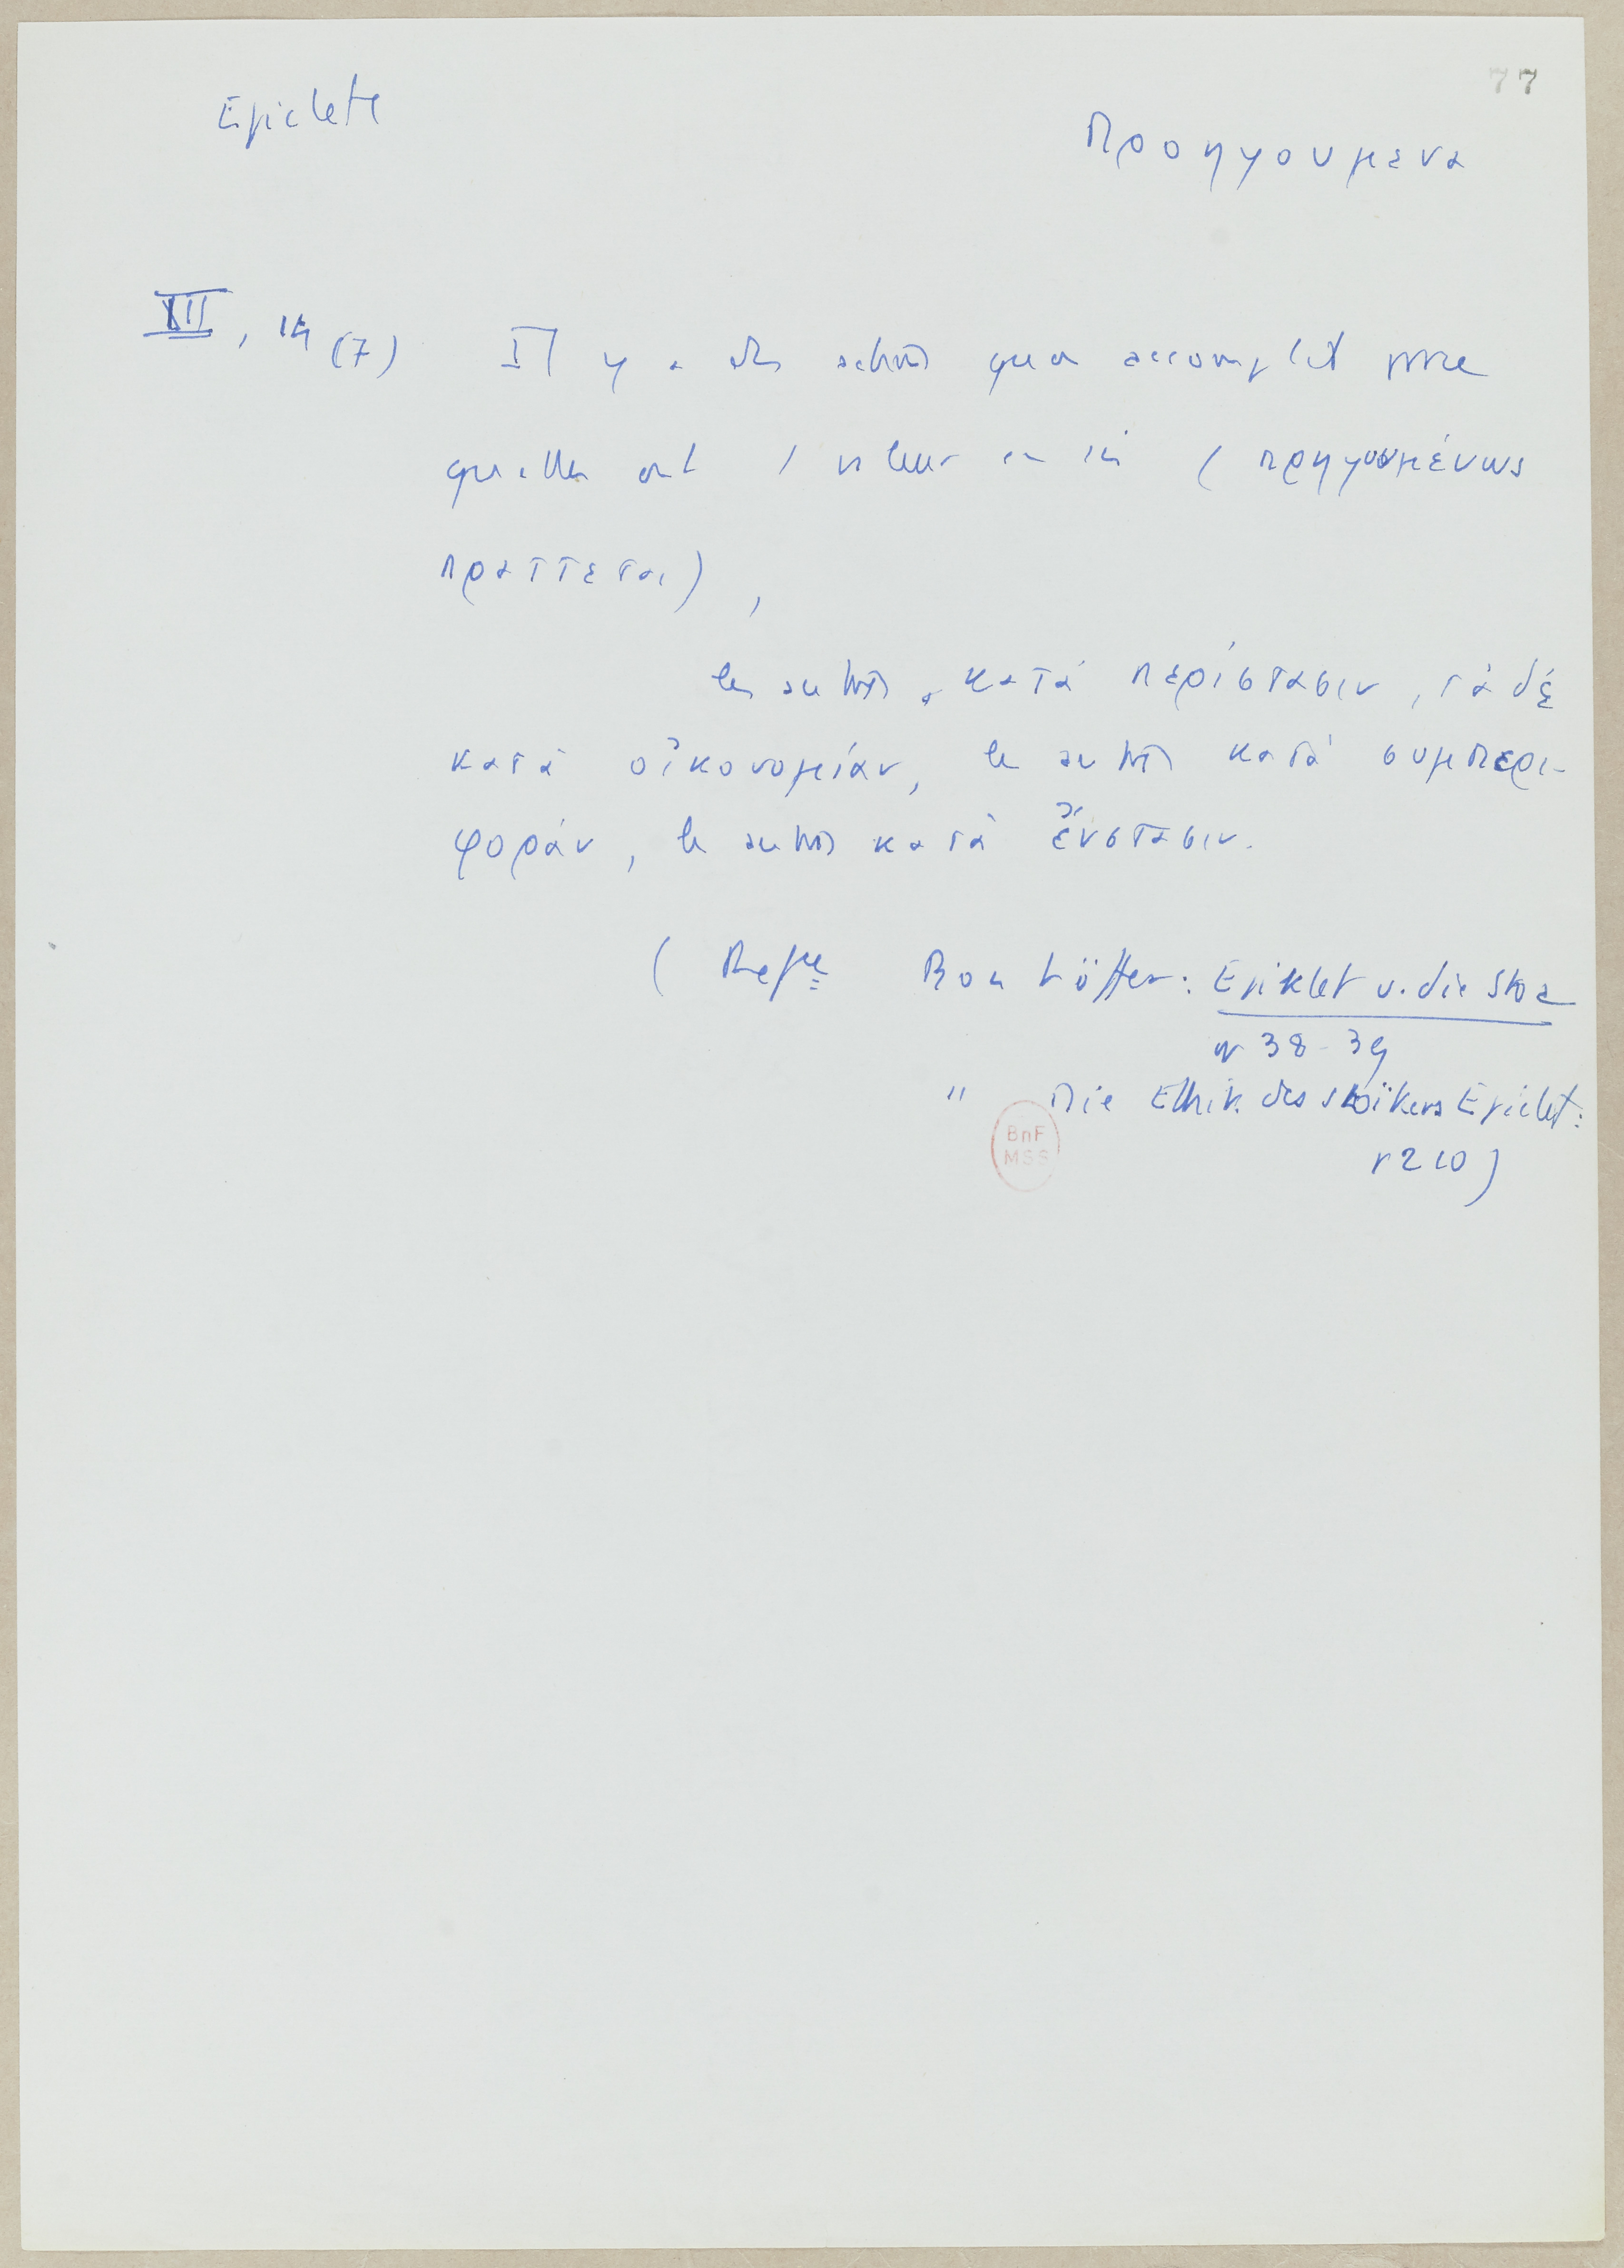 77
Epictete
Προηγουμενα
III, 14 (7) Il y a des actions qu'on accomplit parce
qu'elles ont 1 valeur en soi (προηγουμένως
πραττεται),
les autres κατά περίστασιν, τὰ δέ
κατά οἰκονομίαν, les autres κατά συμπερι-
φοράν, les autres κατὰ ἔνστασιν.
( Ref Bonhöffer: Epiktet u. die Stoa
38-39
" Die Ethik des Stoïkers Epictet:
p 210)
BnF
MSS